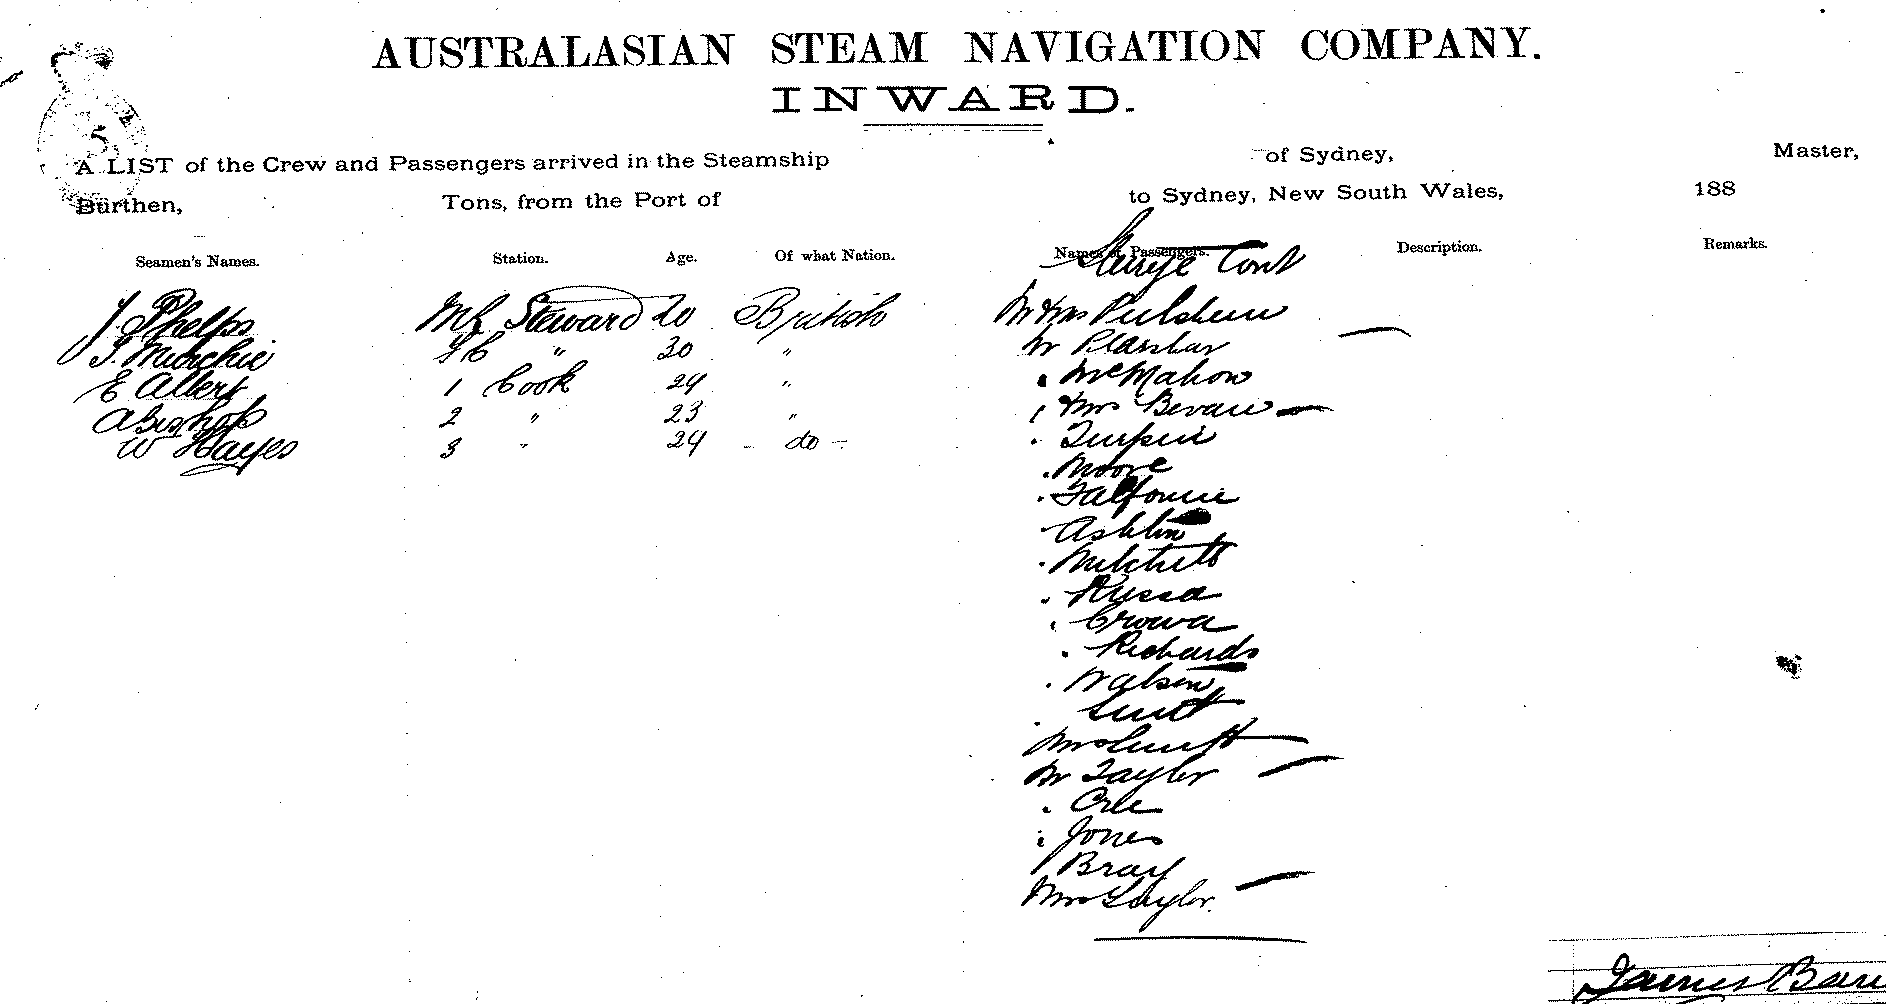 AUSTRALASIAN STEAM NAVIGATION COMPANY.
INWARD.
A LIST of the Crew and Passengers arrived in the Steamship of Sydney, Master,
Burthen, Tons, from the Port of to Sydney, New South Wales, 188
Seamen's Names. Station. Age. Of what Nation. Names of Passengers. Description. Remarks.
Steerge Cont
J Phelps Steward 20 British Mr & Mrs
J. Murchie " 30 " Mr
E Albert 1 Cook 24 " " McMahon
A Bishop 2 " 23 " " & Mrs Bevan
W Hayes 3 " 24 - do - " Turpin
" Moore
"
Ashton
" Mitchell
" Russa
"
" Richards
" Watson
Mrs
Mr Taylor
"
" Jones
" Bray
Mrs Taylor.
James